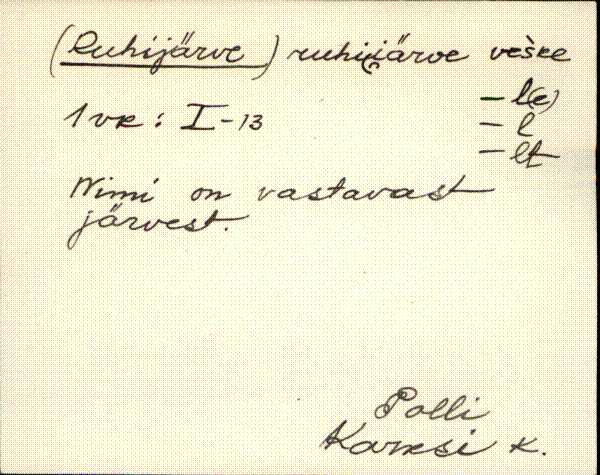 (Ruhijärve) ruhijärve veške
-l(e)
1 vk: I-13
-l
-lt
Nimi on vastavast
järvest.
Polli
Karksi k.